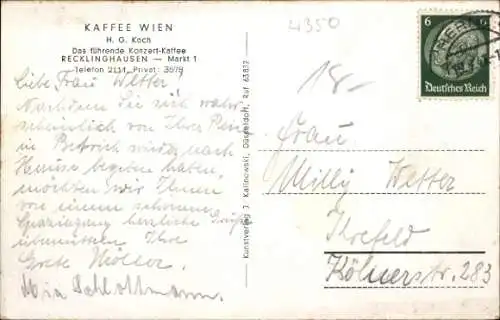 KAFFEE WIEN
H. G. Koch
Das führende Konzert-Kaffee
RECKLINGHAUSEN — Markt 1
Telefon 2111 Privat: 3578
Liebe Frau Wetter!
Nachdem Sie sich wahr-
scheinlich von Ihrer
in wieder nach
Hause begeben haben,
möchten wir Ihnen
von einem schönen
Spaziergang herzliche Grüße
übermitteln Ihre
Grete Möller
Mia Schlottmann.
Kunstverlag J. Kalinowski, Düsseldorf, Ruf 63837
4350
18-
6
6
Deutsches Reich
Frau
Milly Wetter
Krefeld
Kölnerstr. 283